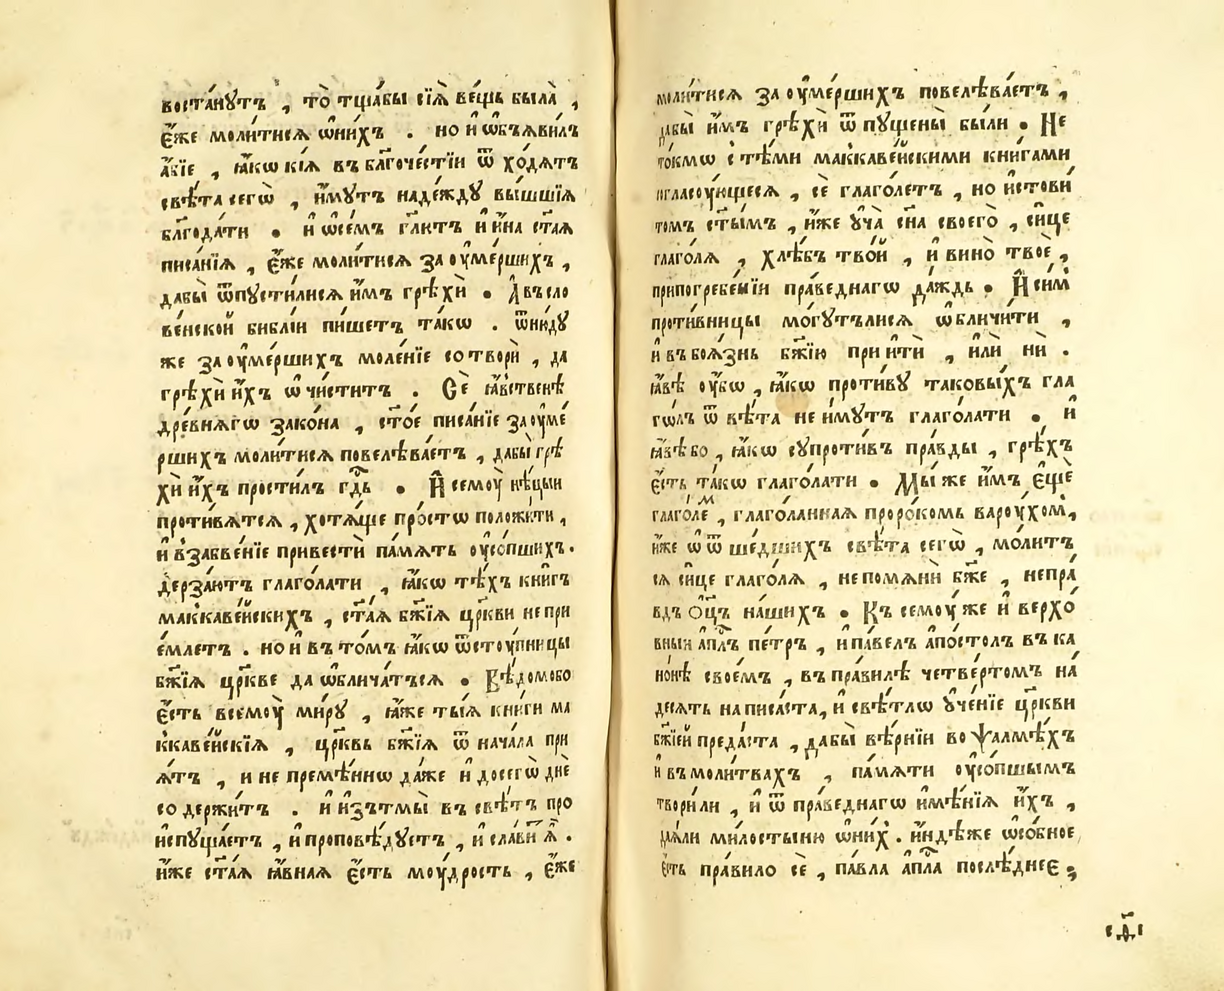 воста́нутъ , то̀ тща̀бы сїѧ̀ ве́щь была̀ ,
є҆́же моли́тисѧ ѡ҆ни́хъ . но и҆ ѡ҆бъѧви́лъ
а҆́кїе , ꙗ҆́кѡ кїѧ̀ въ бл҃гоче́стїи ѿ хо́дѧтъ
свѣ́та сегѡ̀ , и҆́мутъ наде́жду вы́шшїѧ
бл҃года́ти . и҆ ѡ҆се́мъ гл҃етъ и҆ и҆́на ст҃а́ѧ
писа́нїѧ , є҆́же моли́тисѧ за оу҆ме́ршихъ ,
дабы̀ ѿпусти́лисѧ и҆́мъ грѣхѝ . А҆ въ сло
ве́нской би́блїи пи́шетъ та́кѡ . ѿню́ду
же за оу҆ме́ршихъ моле́нїе сотворѝ , да
грѣхѝ и҆́хъ ѡ҆чи́ститъ . Сѐ ꙗ҆́вственѣ
дре́внѧгѡ зако́на , ст҃о́е писа́нїе за оу҆ме́
ршихъ моли́тисѧ повелѣва́етъ , дабы̀ грѣ
хѝ и҆́хъ прости́лъ гд҇ь . И҆ семоу̀ нѣ́цыи
проти́вѧтсѧ , хотѧ́ще про́стѡ положи́ти ,
и҆ в̾забве́нїе привестѝ па́мѧть оу҆со́пшихъ .
дерза́ютъ глаго́лати , ꙗ҆́кѡ тѣ́хъ кни́гъ
маккаве́йскихъ , ст҃а́ѧ бж҃їѧ цр҃кви не при
е́млетъ . но и҆ въ то́мъ ꙗ҆́кѡ ѿстоу́пницы
бж҃їѧ цр҃кве да ѡ҆блича́тъсѧ . Вѣ́домо бо
є҆́сть всемоу̀ ми́ру , ꙗ҆́же ты́ѧ кни́ги ма
ккаве́йскїѧ , цр҃квь бж҃їѧ ѿ нача́ла при
ѧ́тъ , и не премѣ́ннѡ да́же и҆ досегѡ̀ днѐ
со держи́тъ . и҆ и҆зътмы̀ въ свѣ́тъ про
и҆спуща́етъ , и҆ проповѣ́дуетъ , и҆ сла́витъ ѧ҆̀ .
и҆́же ст҃а́ѧ ꙗ҆́вная є҆́сть моу́дрость , є҆́же
моли́тисѧ за оу҆ме́ршихъ повелѣва́етъ ,
дабы̀ и҆́мъ грѣхѝ ѿ пуще́ны бы́ли . Не
то́кмѡ с̾ тѣ́ми маккаве́йскими кни́гами
согласоу́ющесѧ , сѐ глаго́летъ , но и҆ стови́
томъ ст҃ы́мъ , и҆́же уча̀ сн҃а своего̀ , си́це
глаго́лѧ , хлѣ́бъ тво́й , и҆ вино̀ твоѐ ,
припогребе́нїи пра́веднагѡ да́ждь . И҆ си́м̾
проти́вницы мо́гутълисѧ ѡ҆бличи́ти ,
и҆ въ боѧ́знь бж҃їю прїи́ти , и҆лѝ нѝ .
ꙗ҆́вѣ оу҆́бѡ , ꙗ҆́кѡ проти́ву таковы́хъ гла
го́лъ ѿ вѣ́та не и҆́мутъ глаго́лати . и҆
ꙗ҆́вѣ бо , ꙗ҆́кѡ супроти́въ пра́вды , грѣ́хъ
є҆́сть та́кѡ глаго́лати . Мы́ же и҆́мъ є҆щѐ
глаго́лем̾ , глаго́ланнаѧ проро́комь вароу́хом̾ ,
и҆́же ѡ҆ ѿше́дшихъ свѣ́та сегѡ̀ , мо́литъ
сѧ си́це глаго́лѧ , не помѧнѝ бж҃е , непра́
вдъ ѻ҆ц҃ъ на́шихъ . Къ семоу́ же и҆ верхо́
вныи а҆п҇лъ пе́тръ , и҆ па́велъ а҆по́столъ въ ка
но́нѣ свое́мъ , въ пра́вилѣ четве́ртомъ на́
десѧть написа́ста , и҆ свѣ́тлѡ уче́нїе цр҃кви
бж҃їей преда́ста , дабы̀ вѣ́рнїи во ѱалмѣ́хъ
и҆ въ моли́твахъ , па́мѧти оу҆со́пшымъ
твори́ли , и҆ ѿ пра́веднагѡ и҆мѣ́нїѧ и҆́хъ ,
даѧ́ли ми́лостыню ѡ҆ни́х̾ . и҆ндѣ́же ѡ҆со́бное
є҆́сть пра́вило сѐ , па́вла а҆п҇ла послѣ́днее ,
д҃